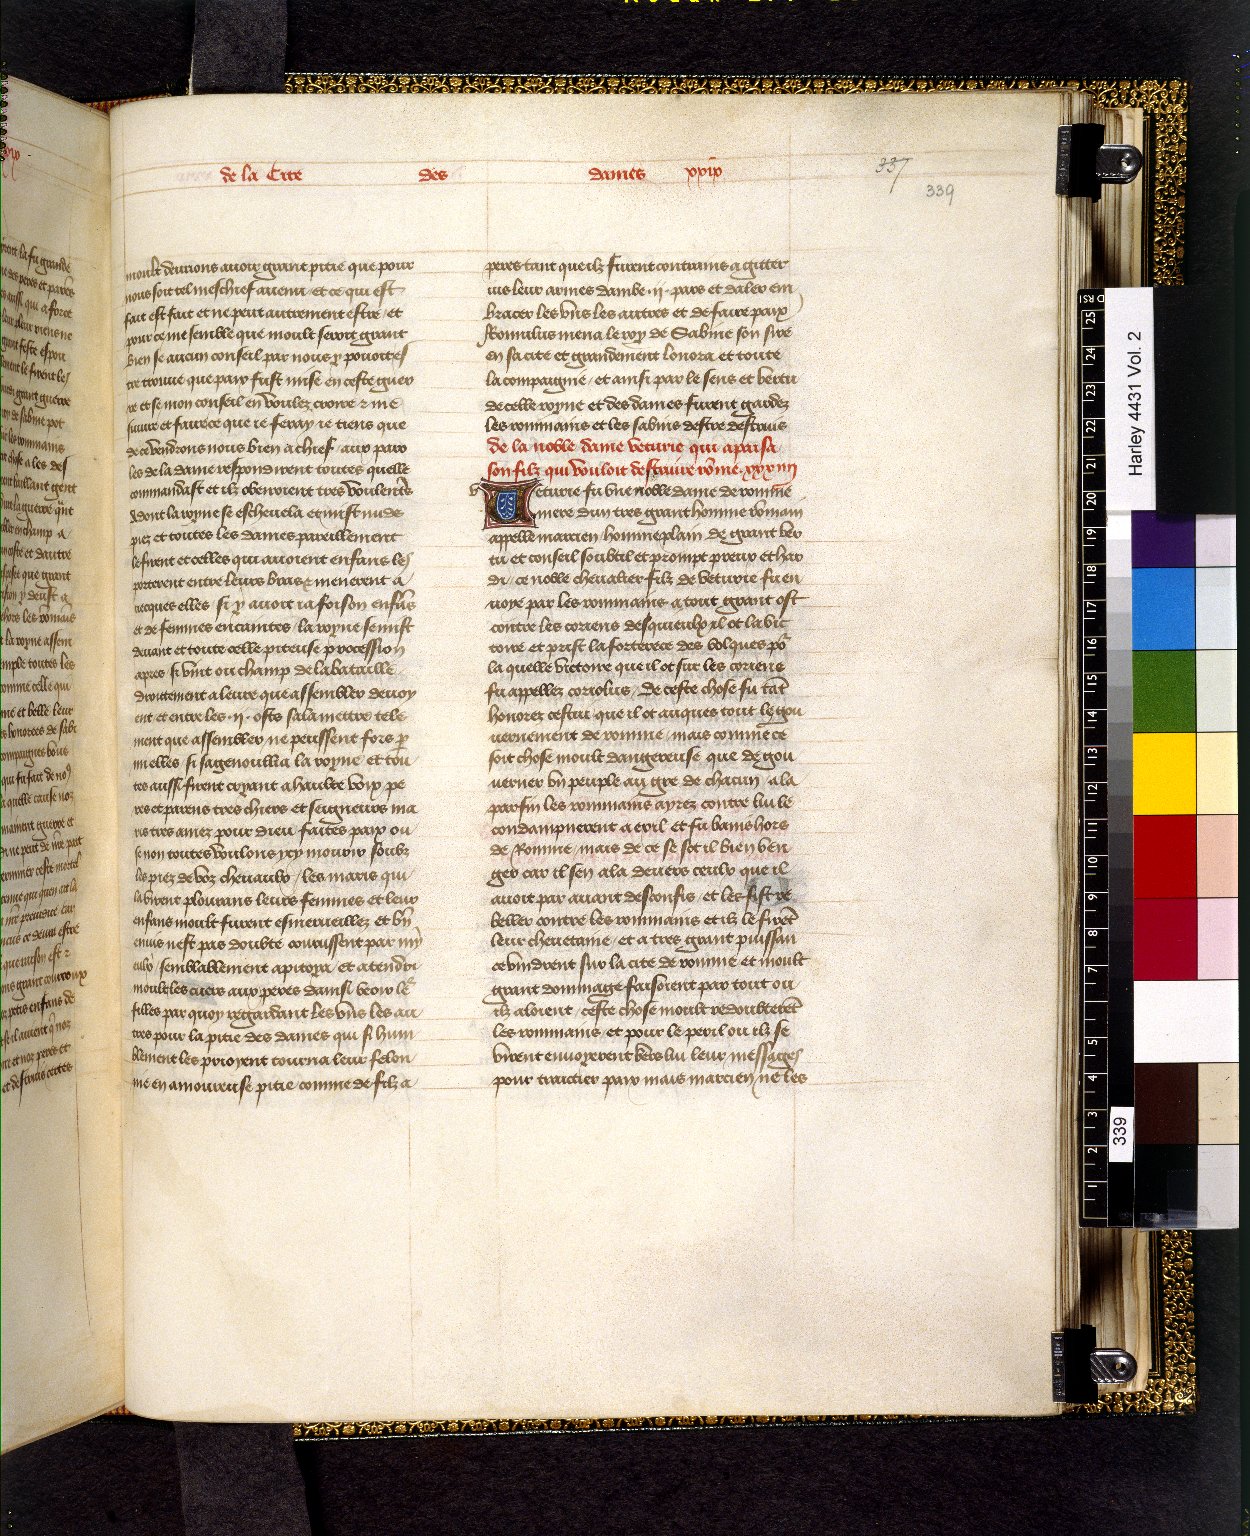 de la Cite des dames xxix
337
339
moult deurions auoir grant pitie que pour
nous soit tel meschief auenu et ce qui est
fait est fait et ne peut autrement estre et
pour ce me semble que moult seroit grant
bien se aucun conseil par nous y pouoit es
tre trouue que paix fust mise en ceste guer
re et se mon conseil en voulez croire & me
suiure et faire ce que ie feray ie tiens que
de ce vendrons nous bien a chief aux paro
les de la dame respondirent toutes quelle
commandast et ilz obeiroient tres voulentes
Adont la royne se escheuela et mist nuds
piez et toutes les dames pareillement
le firent et celles qui auoient enfans les
porterent entre leurs bras & menerent a
uecques elles si y auoit ia foison enfans
et de femmes encaintes la royne se mist
deuant et toute celle piteuse procession
apres si vint ou champ de la bataille
droittement a leure que assembler deuoy
ent et entre les .ij. osts sala mettre tele
ment que assembler ne peussent fors p
mi elles si sagenoullia la royne et tou
tes aussi firent cryant a haulte voix pe
res et parens tres chiers et seigneurs ma
ris tres amez pour dieu faites paix ou
se non toutes voulons ycy mourir soubz
les piez de voz cheuaulx les maris qui
la virent plourans leurs femmes et leur
enfans moult furent esmerueillez et bn
enuis nest pas doubte courussent par my
eulx semblablement apitoya et atendri
moult les cuers aux peres dainsi veoir les
filles par quoy regardant les vns les au
tres pour la pitie des dames qui si hum
blement les prioyent tourna leur felon
nie en amoureuse pitie comme de filz a
peres tant que ilz furent contrains a gitter
ius leur armes dambe .ij. pars et daler em
bracer les vns les autres et de faire paix
Romulus mena le roy de Sabine son sire
en sa cite et grandement lonora et toute
la compaignie et ainsi par le sens et vertu
de celle royne et des dames furent gardez
les rommains et les sabins destre destruis
de la noble dame veturie qui apaisa
son filz qui vouloit destruire rome xxxiiij
Veturie fu vne noble dame de romme
mere dun tres grant homme romain
appelle marcien homme plain de grant ver
tu et conseil soubtil et prompt preux et har
di ce noble cheualier filz de veturie fu en
uoye par les rommains a tout grant ost
contre les coriens desquieulx il ot la vic
toire et prist la forterece des volques po
la quelle victoire que il ot sur les coriens
fu appellez coriolus de ceste chose fu tat
honorez cestui que il ot auques tout le gou
uernement de romme mais comme ce
soit chose moult dangereuse que de gou
uerner vn peuple au gre de chacun a la
parfin les rommains ayrez contre lui le
condampnerent a exil et fu banis hors
de Romme mais de ce se sot il bien ven
gier car il sen ala deuers ceulx que il
auoit par auant desconfis et les fist re
beller contre les rommains et ilz le firet
leur cheuetaine et a tres grant puissan
ce vindrent sur la cite de romme et moult
grant dommage faisoient par tout ou
ilz aloient ceste chose moult redoubteret
les rommains et pour le peril ou ilz se
virent enuoyerent vers lui leur messages
pour traictier paix mais marcien ne les
Harley 4431 Vol. 2
339